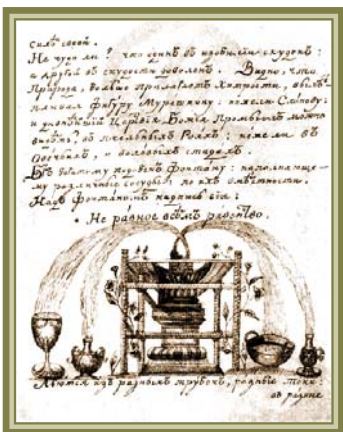 силѣ своей.
Не чудо ли? что один въ изобиліи скуденъ:
а другой въ скудости доволенъ. Видно, что
Природа, больше прилагаетъ Хитрости,
фигуру Мурашкину: нежели Слонову:
и Царствія Божія Промыслъ можно
въ пчельныхъ Рояхъ: нежели въ
Овечихъ, и воловыхъ стадахъ.
Бгъ богатому подобенъ Фонтану: наполняюще-
му различные сосуды по ихъ вмѣстности.
Надъ Фонтаномъ надпись сія:
Не равное всѣмъ равенство.
Льются изъ разныхъ трубокъ, разные токи:
въ разные